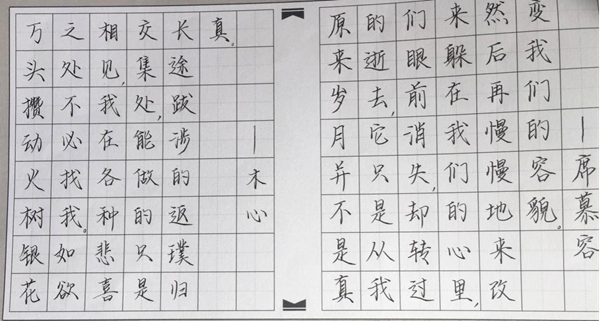 万头攒动火树银花
之处不必找我。如欲
相见,我在各种悲喜
交集处,能做的只是
长途跋涉的返璞归
真。
—木心
原来岁月并不是真
的逝去,它只是从我
们眼前消失,却转过
来躲在我们的心里,
然后再慢慢地来改
变我们的容貌。
—席慕容